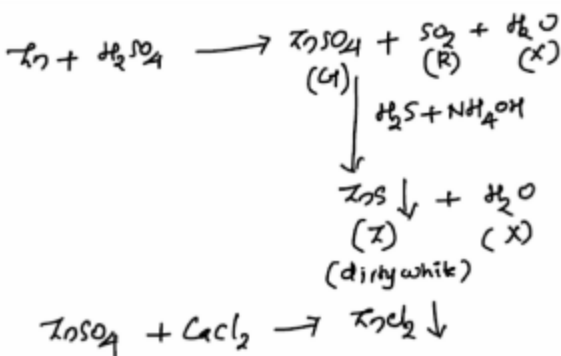 Zn + H2SO4 → ZnSO4 + SO2 + H2O
(G) (R) (X)
H2S + NH4OH
ZnS ↓ + H2O
(Z) (X)
(dirty white)
ZnSO4 + CaCl2 → ZnCl2 ↓